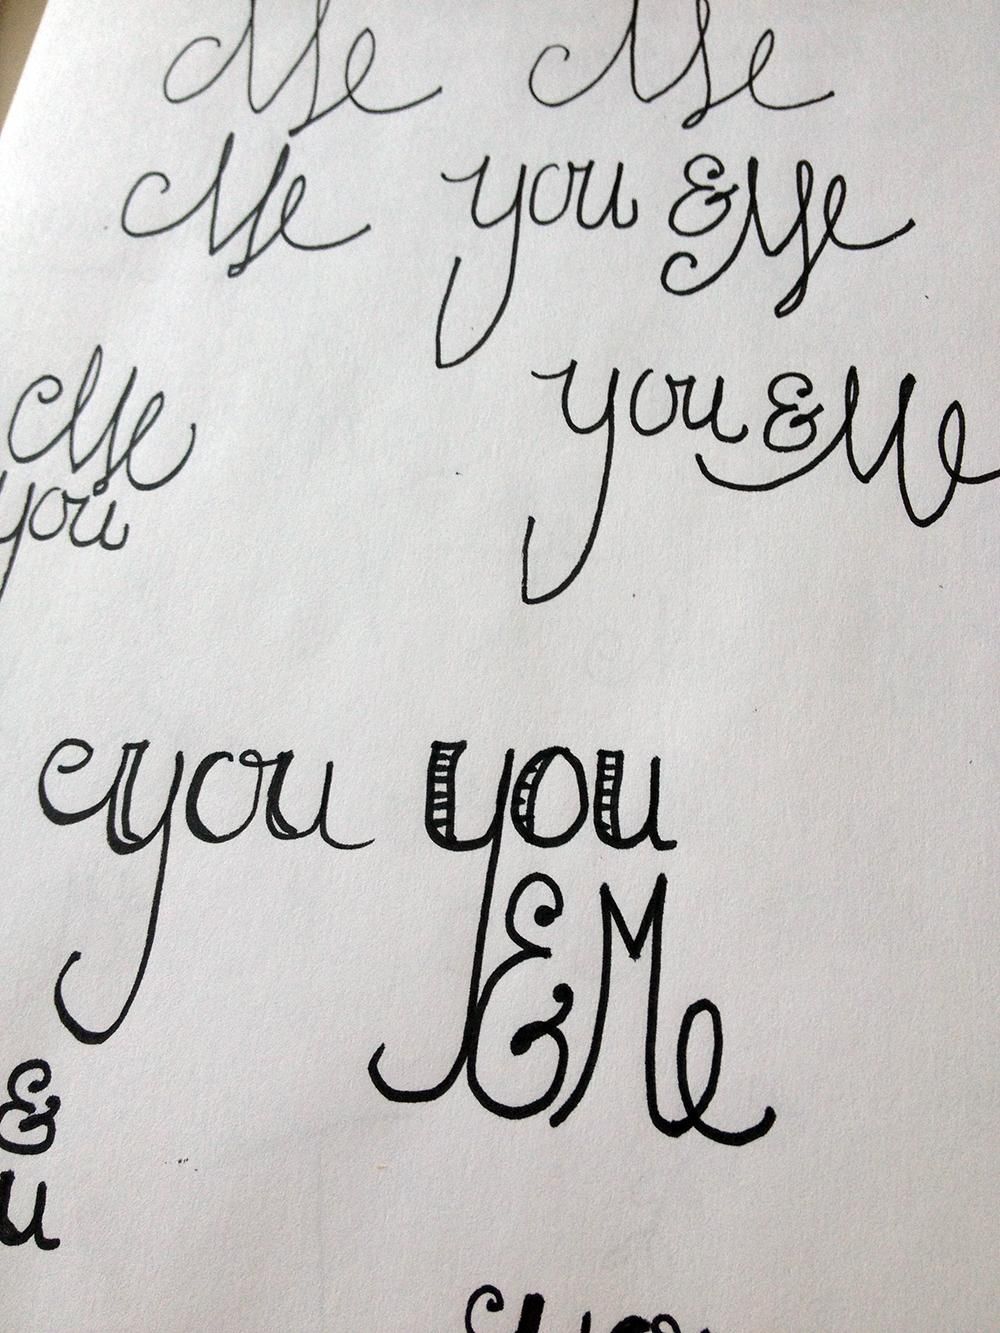 Me Me
Me you & Me
Me
you
you & Me
you you
& Me
&
u